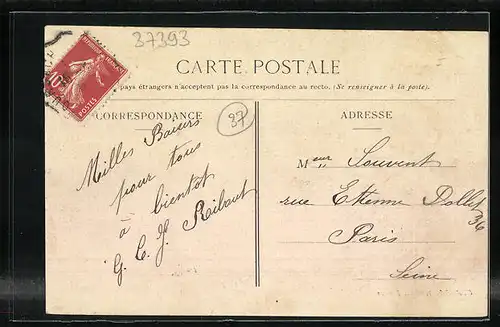 37393
CARTE POSTALE
pays étrangers n'acceptent pas la correspondance au recto. (Se renseigner à la poste).
10
POSTES
CORRESPONDANCE
37
ADRESSE
Milles Baisers
pour tous
à bientôt
G. C. J. Ribaut
Meur Souvent
rue Etienne Dollet
36
Paris
Seine